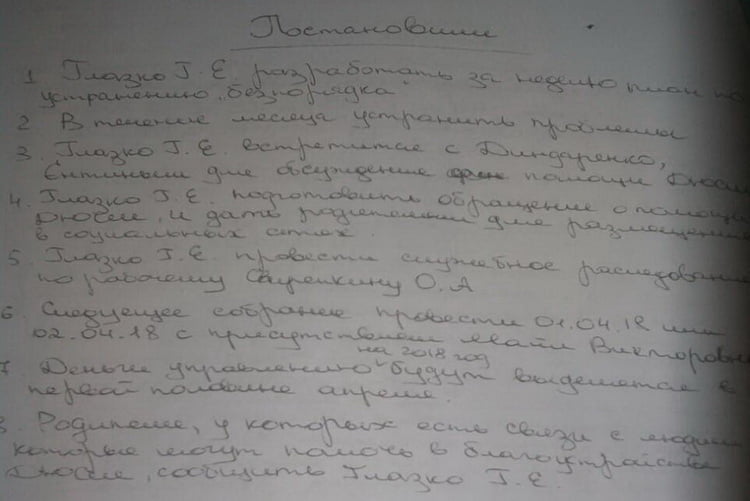 Постановили
1 Глазко Г.Е разработать за неделю план по
устранению „безпорядка"
2 В течение месяца устранить проблемы
3. Глазко Г.Е. встретится с Диндаренко,
для обсуждение помощи
4. Глазко Г.Е. подготовить обращение о помощи
и дать родителям для размещение
в социальных сетях.
5. Глазко Г.Е провести служебное
по рабочему О.А
6. Следующее собрание провести 01.04.18 или
02.04.18 с присутствием Викторовн
на 2018 год
7. Деньги управлению будут выделятся в
первой половине апреля.
8. Родители, у которых есть связи с людьми
которые могут помочь в благоустройстве
сообщить Глазко Г.Е.